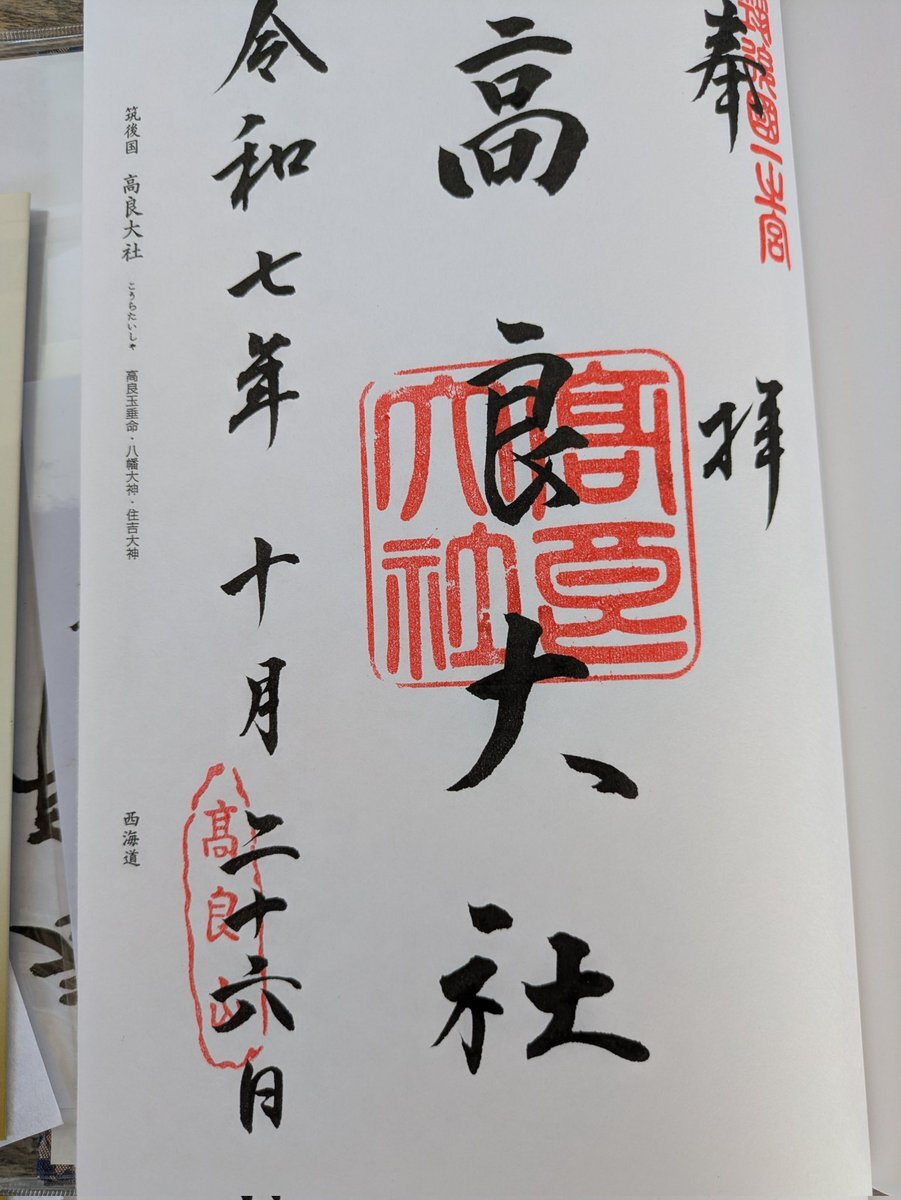 奉拝
高良大社
高良大社
令和七年十月二十六日
高良山
筑後国 高良大社 こうらたいしゃ 高良玉垂命・八幡大神・住吉大神
西海道